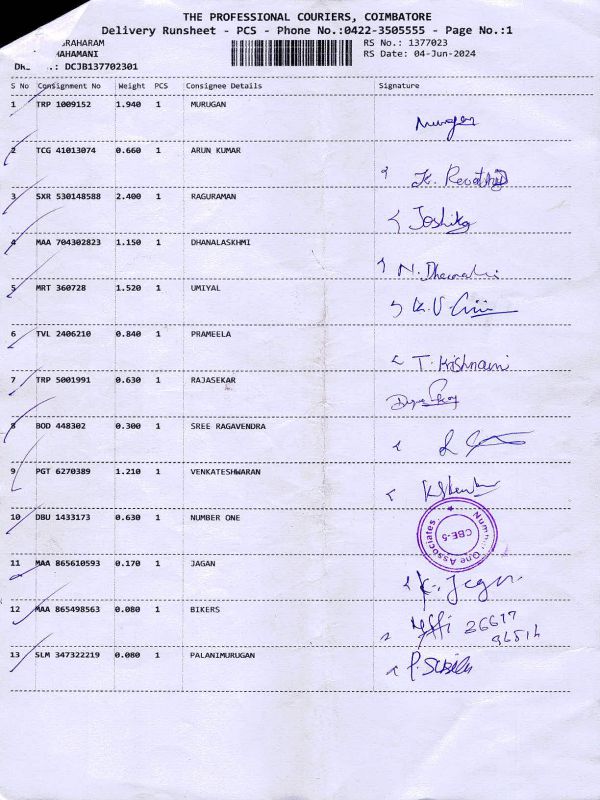 THE PROFESSIONAL COURIERS, COIMBATORE
Delivery Runsheet - PCS - Phone No.:0422-3505555 - Page No.:1
RAHARAM
AHAMANI
RS No.: 1377023
RS Date: 04-Jun-2024
.: DCJB137702301
S No Consignment No Weight PCS Consignee Details Signature
1 TRP 1009152 1.940 1 MURUGAN
2 TCG 41013074 0.660 1 ARUN KUMAR
K. Revathi
3 SXR 530148588 2.400 1 RAGURAMAN
Joshika
4 MAA 704302823 1.150 1 DHANALASKHMI
5 MRT 360728 1.520 1 UMIYAL
6 TVL 2406210 0.840 1 PRAMEELA
T. Krishnaveni
7 TRP 5001991 0.630 1 RAJASEKAR
8 BOD 448302 0.300 1 SREE RAGAVENDRA
9 PGT 6270389 1.210 1 VENKATESHWARAN
10 DBU 1433173 0.630 1 NUMBER ONE
Number One Associates
CBE-5
11 MAA 865610593 0.170 1 JAGAN
K. Jagan
12 MAA 865498563 0.080 1 BIKERS
13 SLM 347322219 0.080 1 PALANIMURUGAN